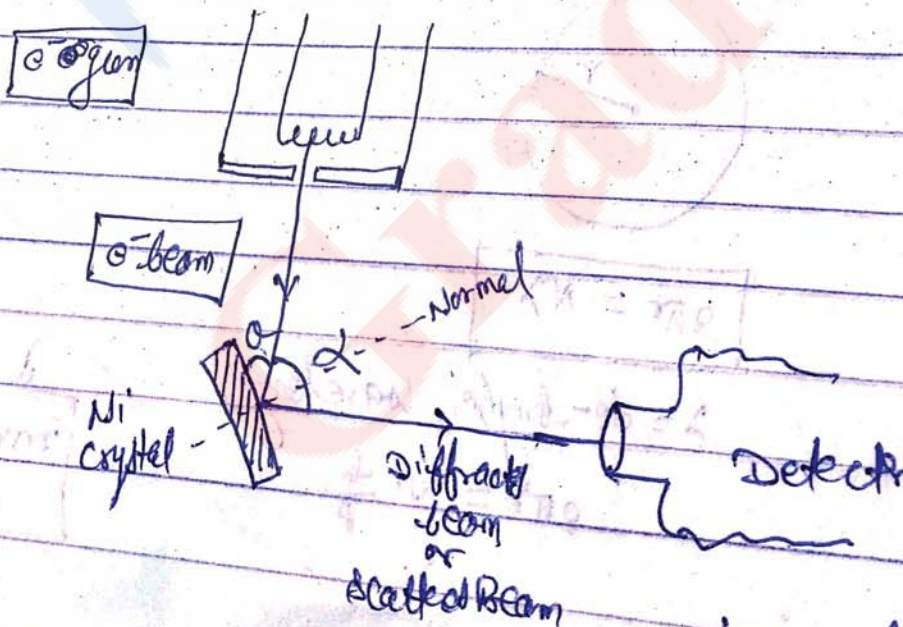 e⁻ gun
e⁻ beam
θ
α
Normal
Ni
crystal
Diffracted
beam
or
Scatted Beam
Detect